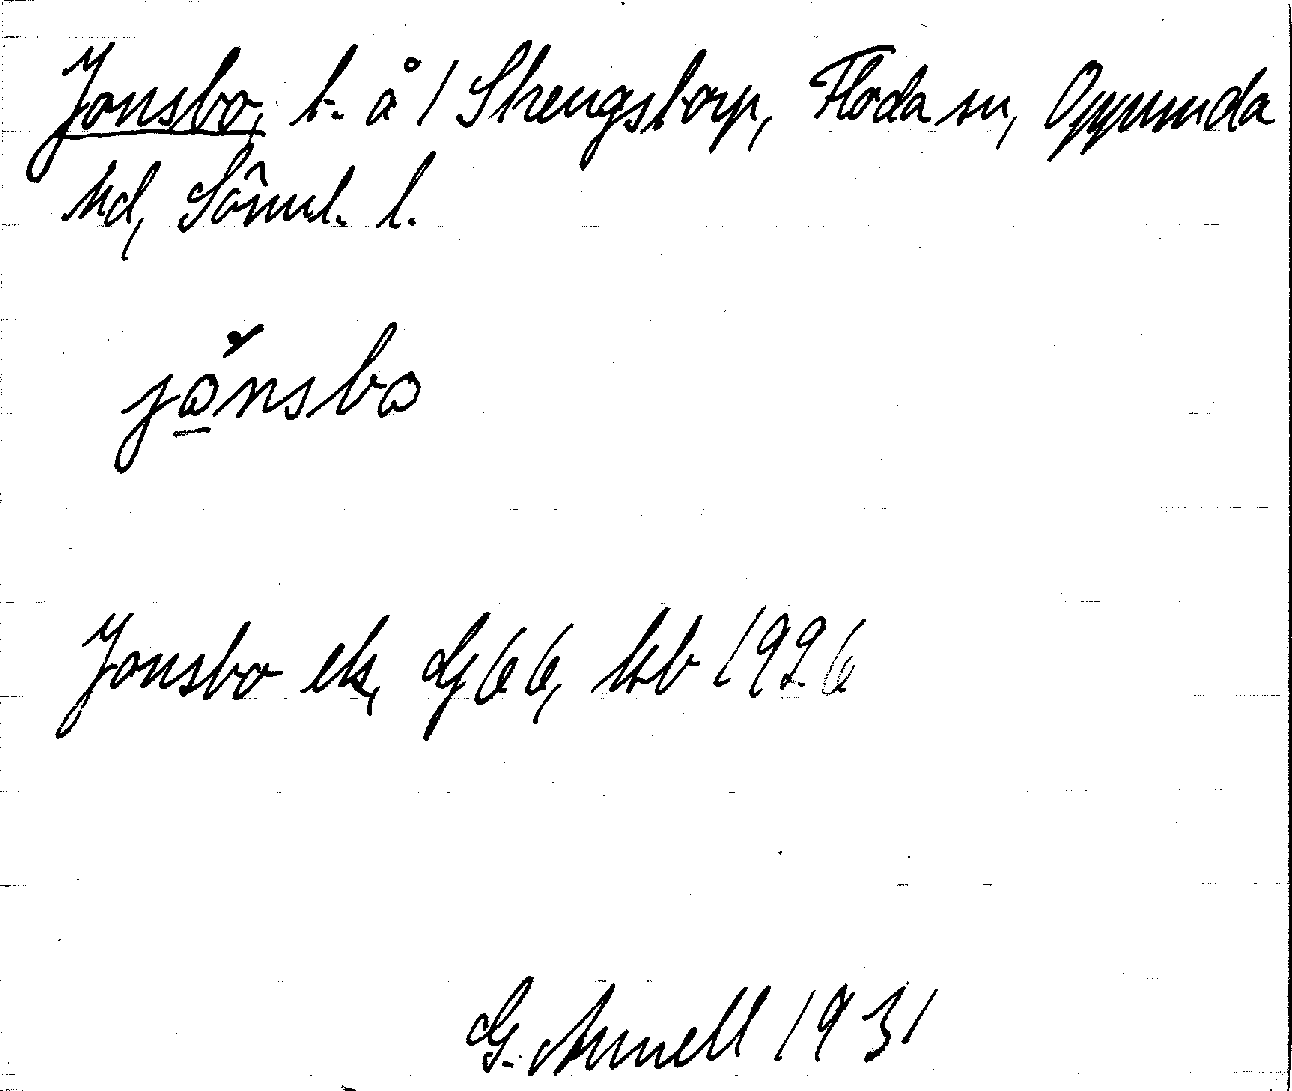 Jonsbo, t. å 1 Skengstorp, Floda sn, Oppunda
hd, Söml. l.
jånsbo
Jonsbo ek, G 66, kb 1926
G. Annell 1931